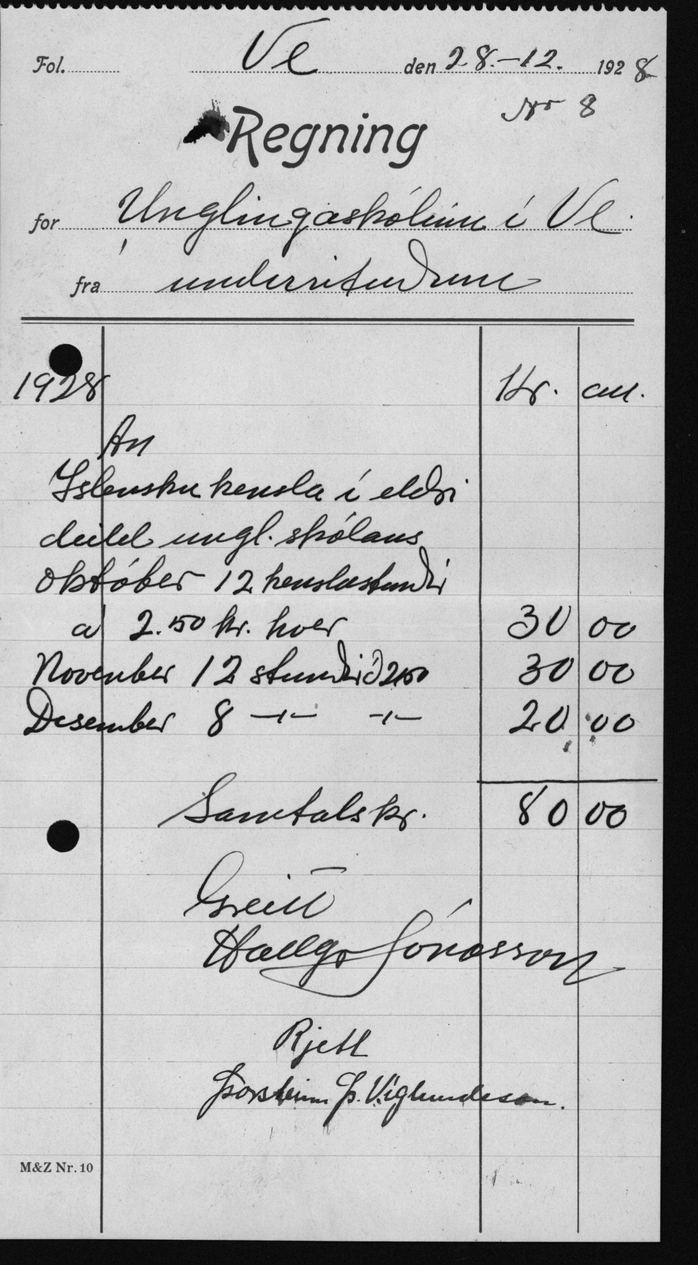 Fol. Ve den 28.-12. 1928
No 8
Regning
for Unglingaskólinn í Ve.
fra undirrituðum
1928 Kr. au.
An
Íslensku kensla í eldri
deild ungl. skólans
október 12 kenslustundir
á 2.50 kr. hver 30 00
November 12 stundir á 2,50 30 00
Desember 8 -"- -"- 20 00
Samtals kr. 80 00
Greitt
Hallgr Jónasson
Rjett
Þorsteinn Þ. Víglundsson.
M&Z Nr. 10